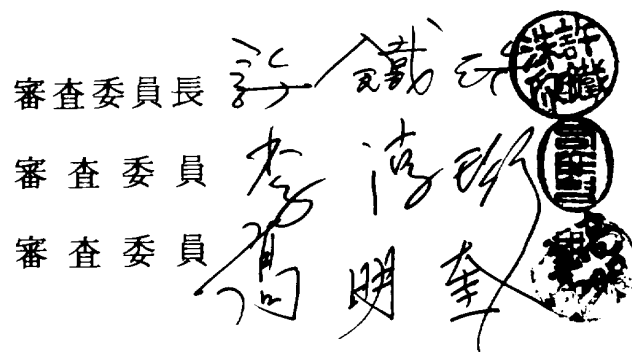 審査委員長 許鐵洙
審査委員 李淳珍
審査委員 高明奎